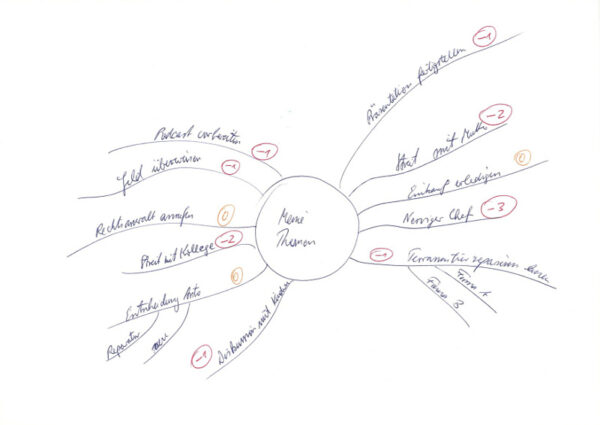 Meine
Themen
Präsentation fertigstellen -1
Streit mit Mutter -2
Einkauf erledigen 0
Nerviger Chef -3
-1 Terrassentür reparieren lassen
Firma A
Firma B
Podcast vorbereiten -1
Geld überweisen -1
Rechtsanwalt anrufen 0
Streit mit Kollege -2
Entscheidung Auto 0
Reparatur
neu
-1 Diskussion mit